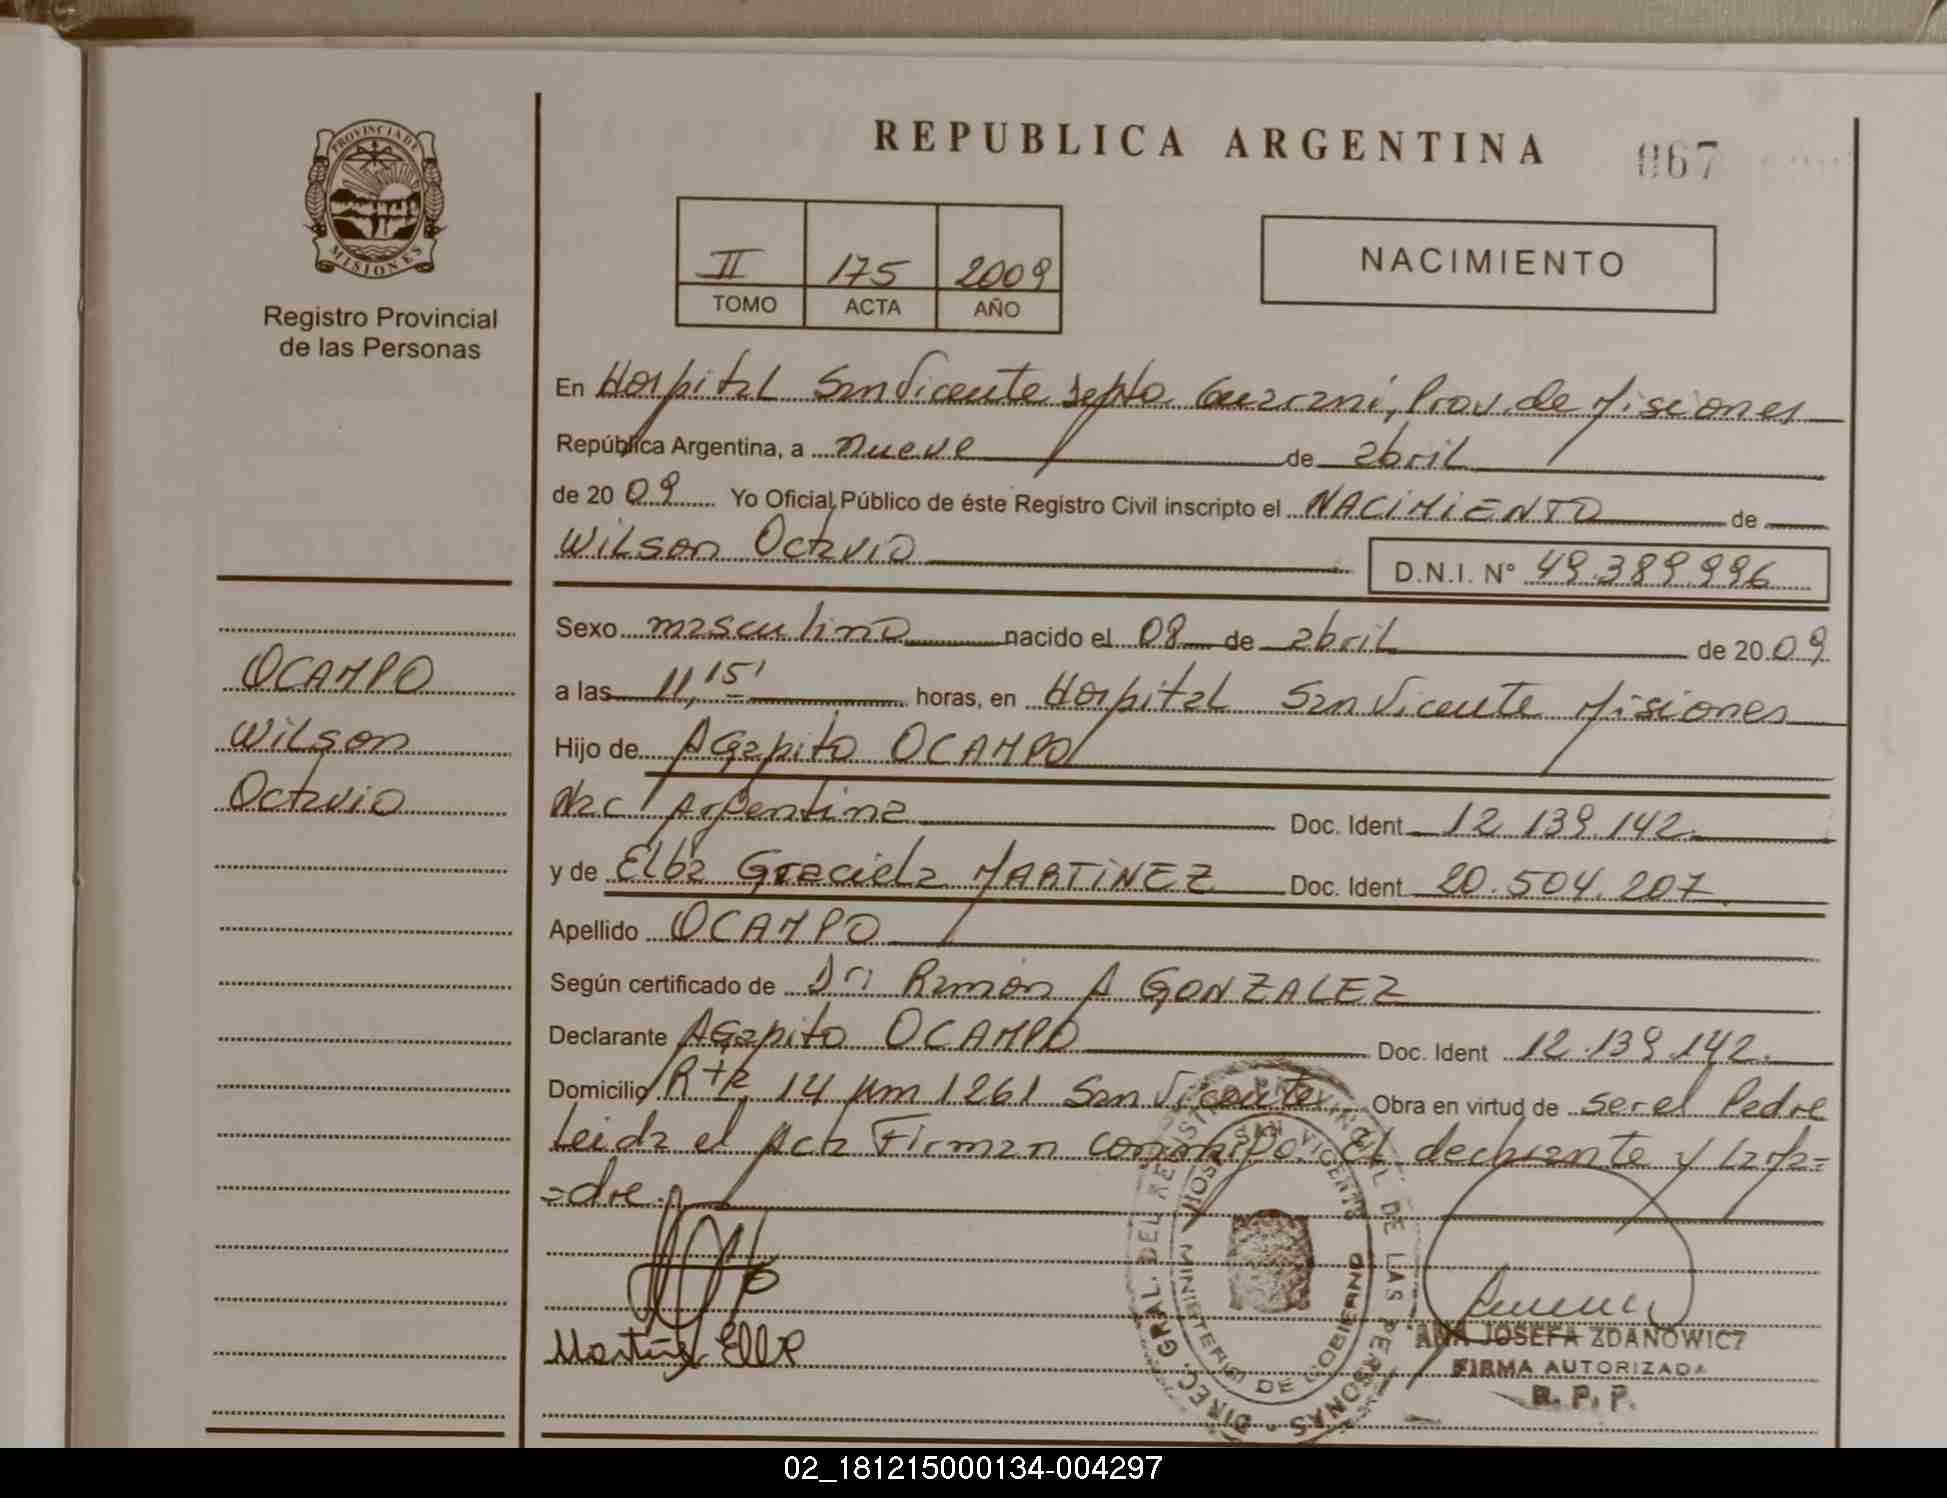 REPUBLICA ARGENTINA
067
PROVINCIA DE
MISIONES
Registro Provincial
de las Personas
II 175 2009
TOMO ACTA AÑO
NACIMIENTO
En Hospital San Vicente Depto Guaraní, Prov. de Misiones
República Argentina, a nueve de abril
de 20 09 Yo Oficial Público de éste Registro Civil inscripto el NACIMIENTO de
Wilson Octavio
D.N.I. Nº 49.389.996
Sexo masculino nacido el 08 de abril de 20 09
a las 11,15' horas, en Hospital San Vicente Misiones
Hijo de Agapito OCAMPO
Nac Argentina Doc. Ident 12.139.142.
y de Elba Graciela MARTINEZ Doc. Ident 20.504.207
Apellido OCAMPO
Según certificado de Dr. Ramón A GONZALEZ
Declarante Agapito OCAMPO Doc. Ident 12.139.142.
Domicilio Rta 14 Km 1261 San Vicente Obra en virtud de ser el Padre
Leida el Acta Firman conmigo. El declarante y La ma=
=dre.
OCAMPO
Wilson
Octavio
Martinez Elba
DIREC. GRAL. DEL REGISTRO PROVINCIAL DE LAS PERSONAS
HOSP. SAN VICENTE
MINISTERIO DE GOBIERNO
ANA JOSEFA ZDANOWICZ
FIRMA AUTORIZADA
R. P. P.
02_181215000134-004297